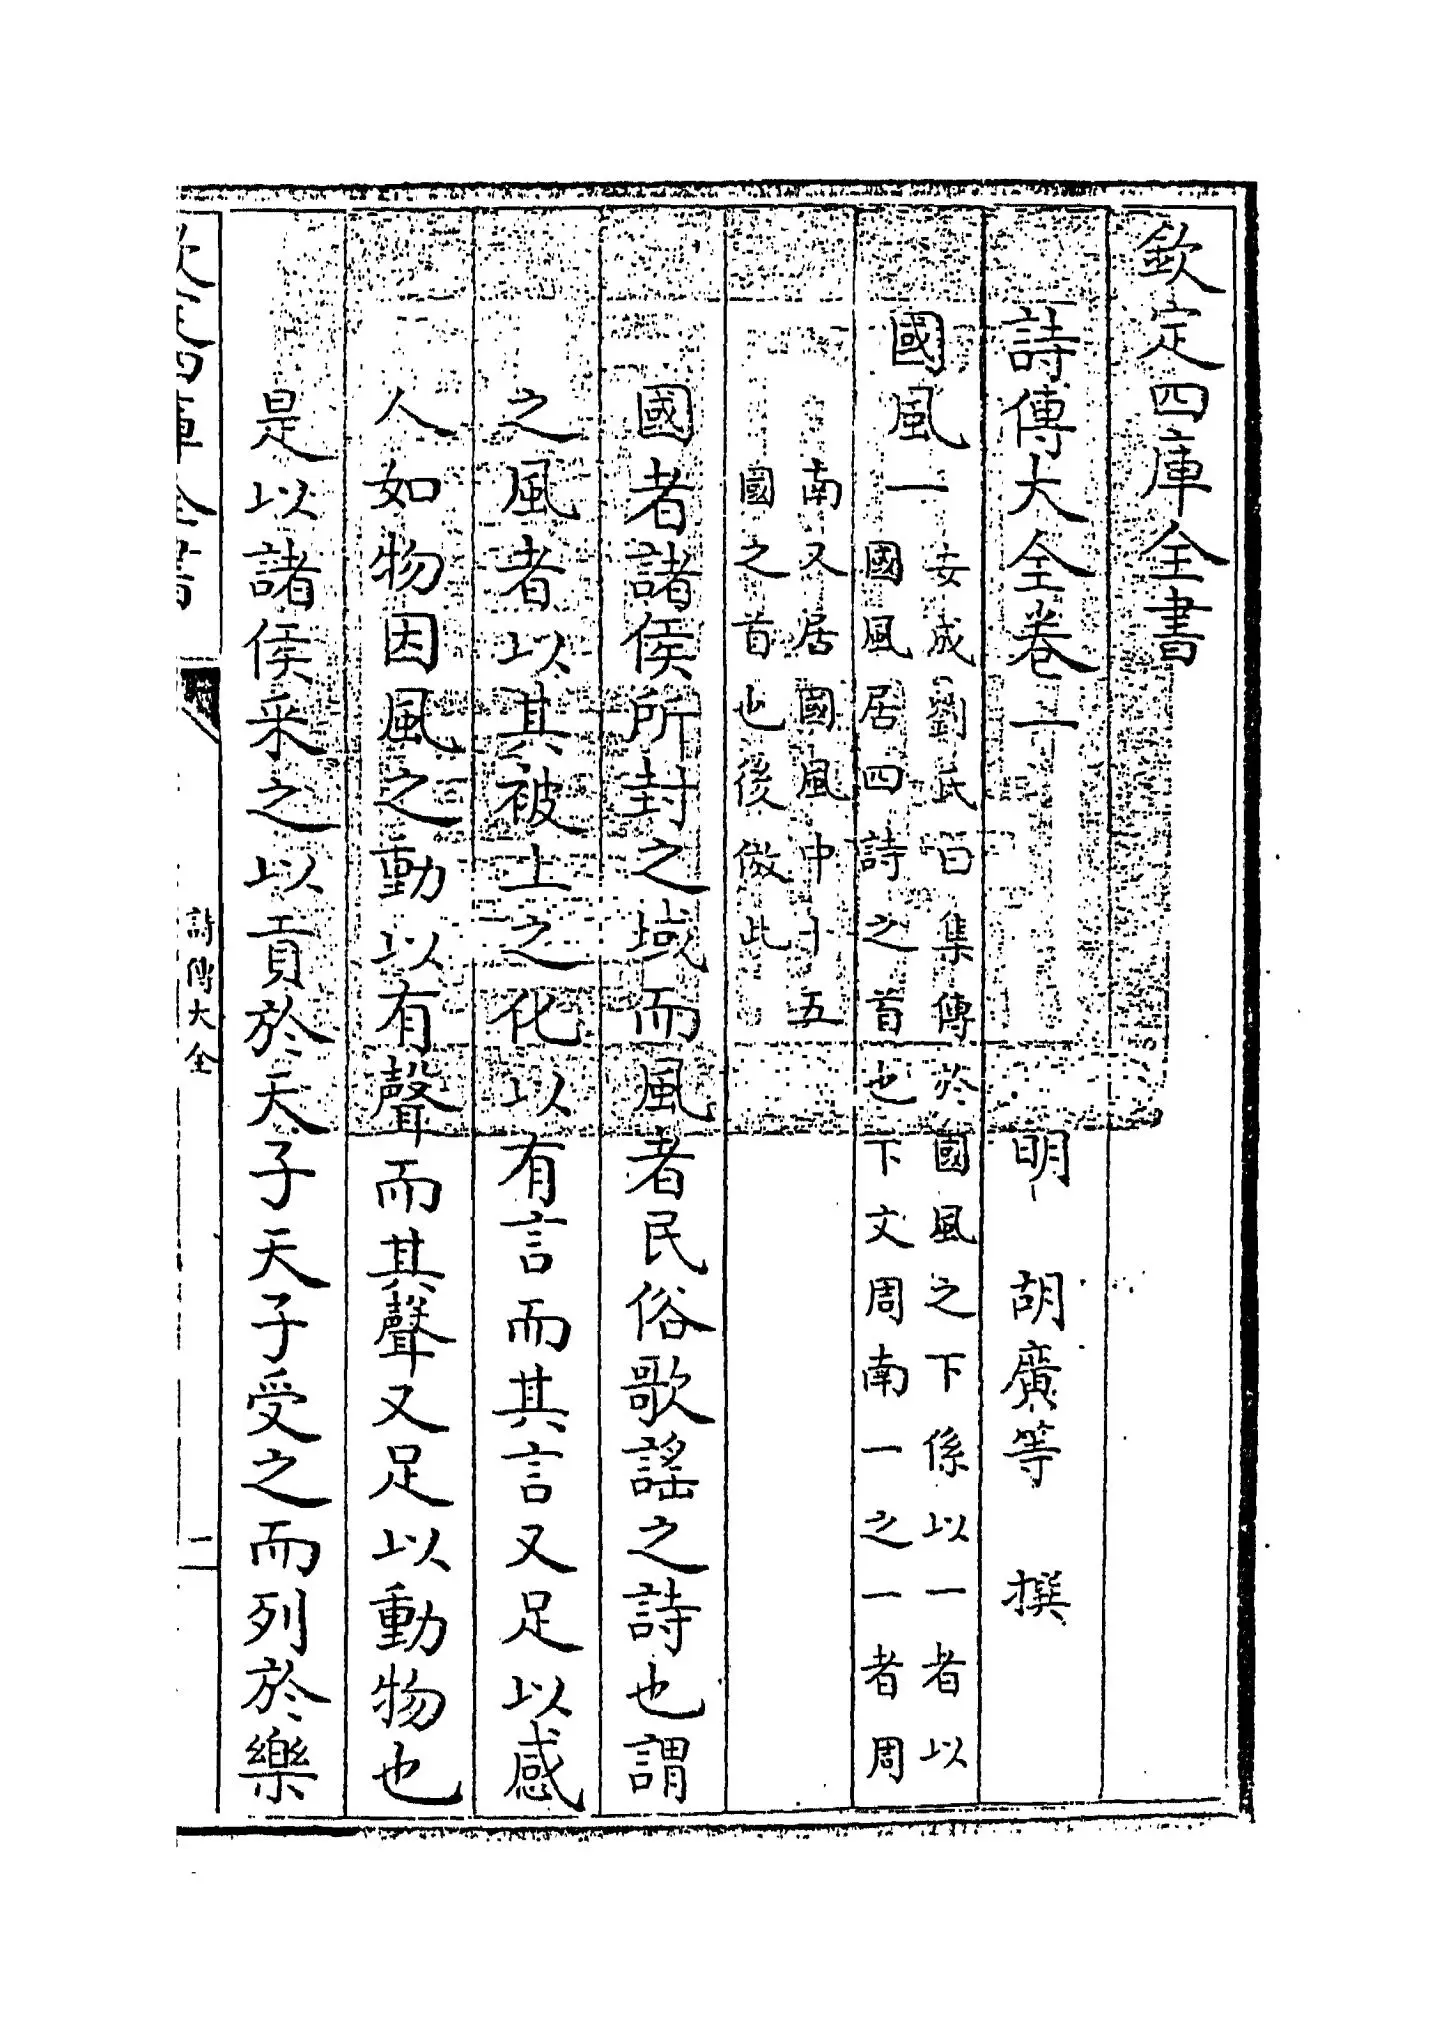 欽定四庫全書
詩傳大全卷一
明 胡廣等 撰
國風一
安成劉氏曰集傳於國風之下係以一者以
國風居四詩之首也下文周南一之一者周
南又居國風中十五
國之首也後倣此
國者諸侯所封之域而風者民俗歌謠之詩也謂
之風者以其被上之化以有言而其言又足以感
人如物因風之動以有聲而其聲又足以動物也
是以諸侯采之以貢於天子天子受之而列於樂
欽定四庫全書
詩傳大全
二